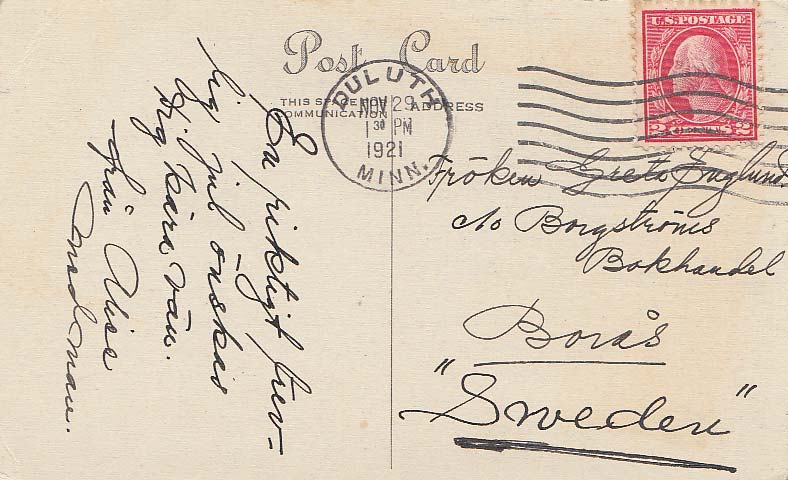 Post Card
THIS SPACE
COMMUNICATION
ADDRESS
DULUTH
NOV 29
1 30 PM
1921
MINN.
U.S. POSTAGE
2 2
En riktigt trev-
lig jul önskas
Dig kära vän.
från Alice
med man.
Fröken Greta Englund.
c/o Borgströms
Bokhandel
Borås
"Sweden"